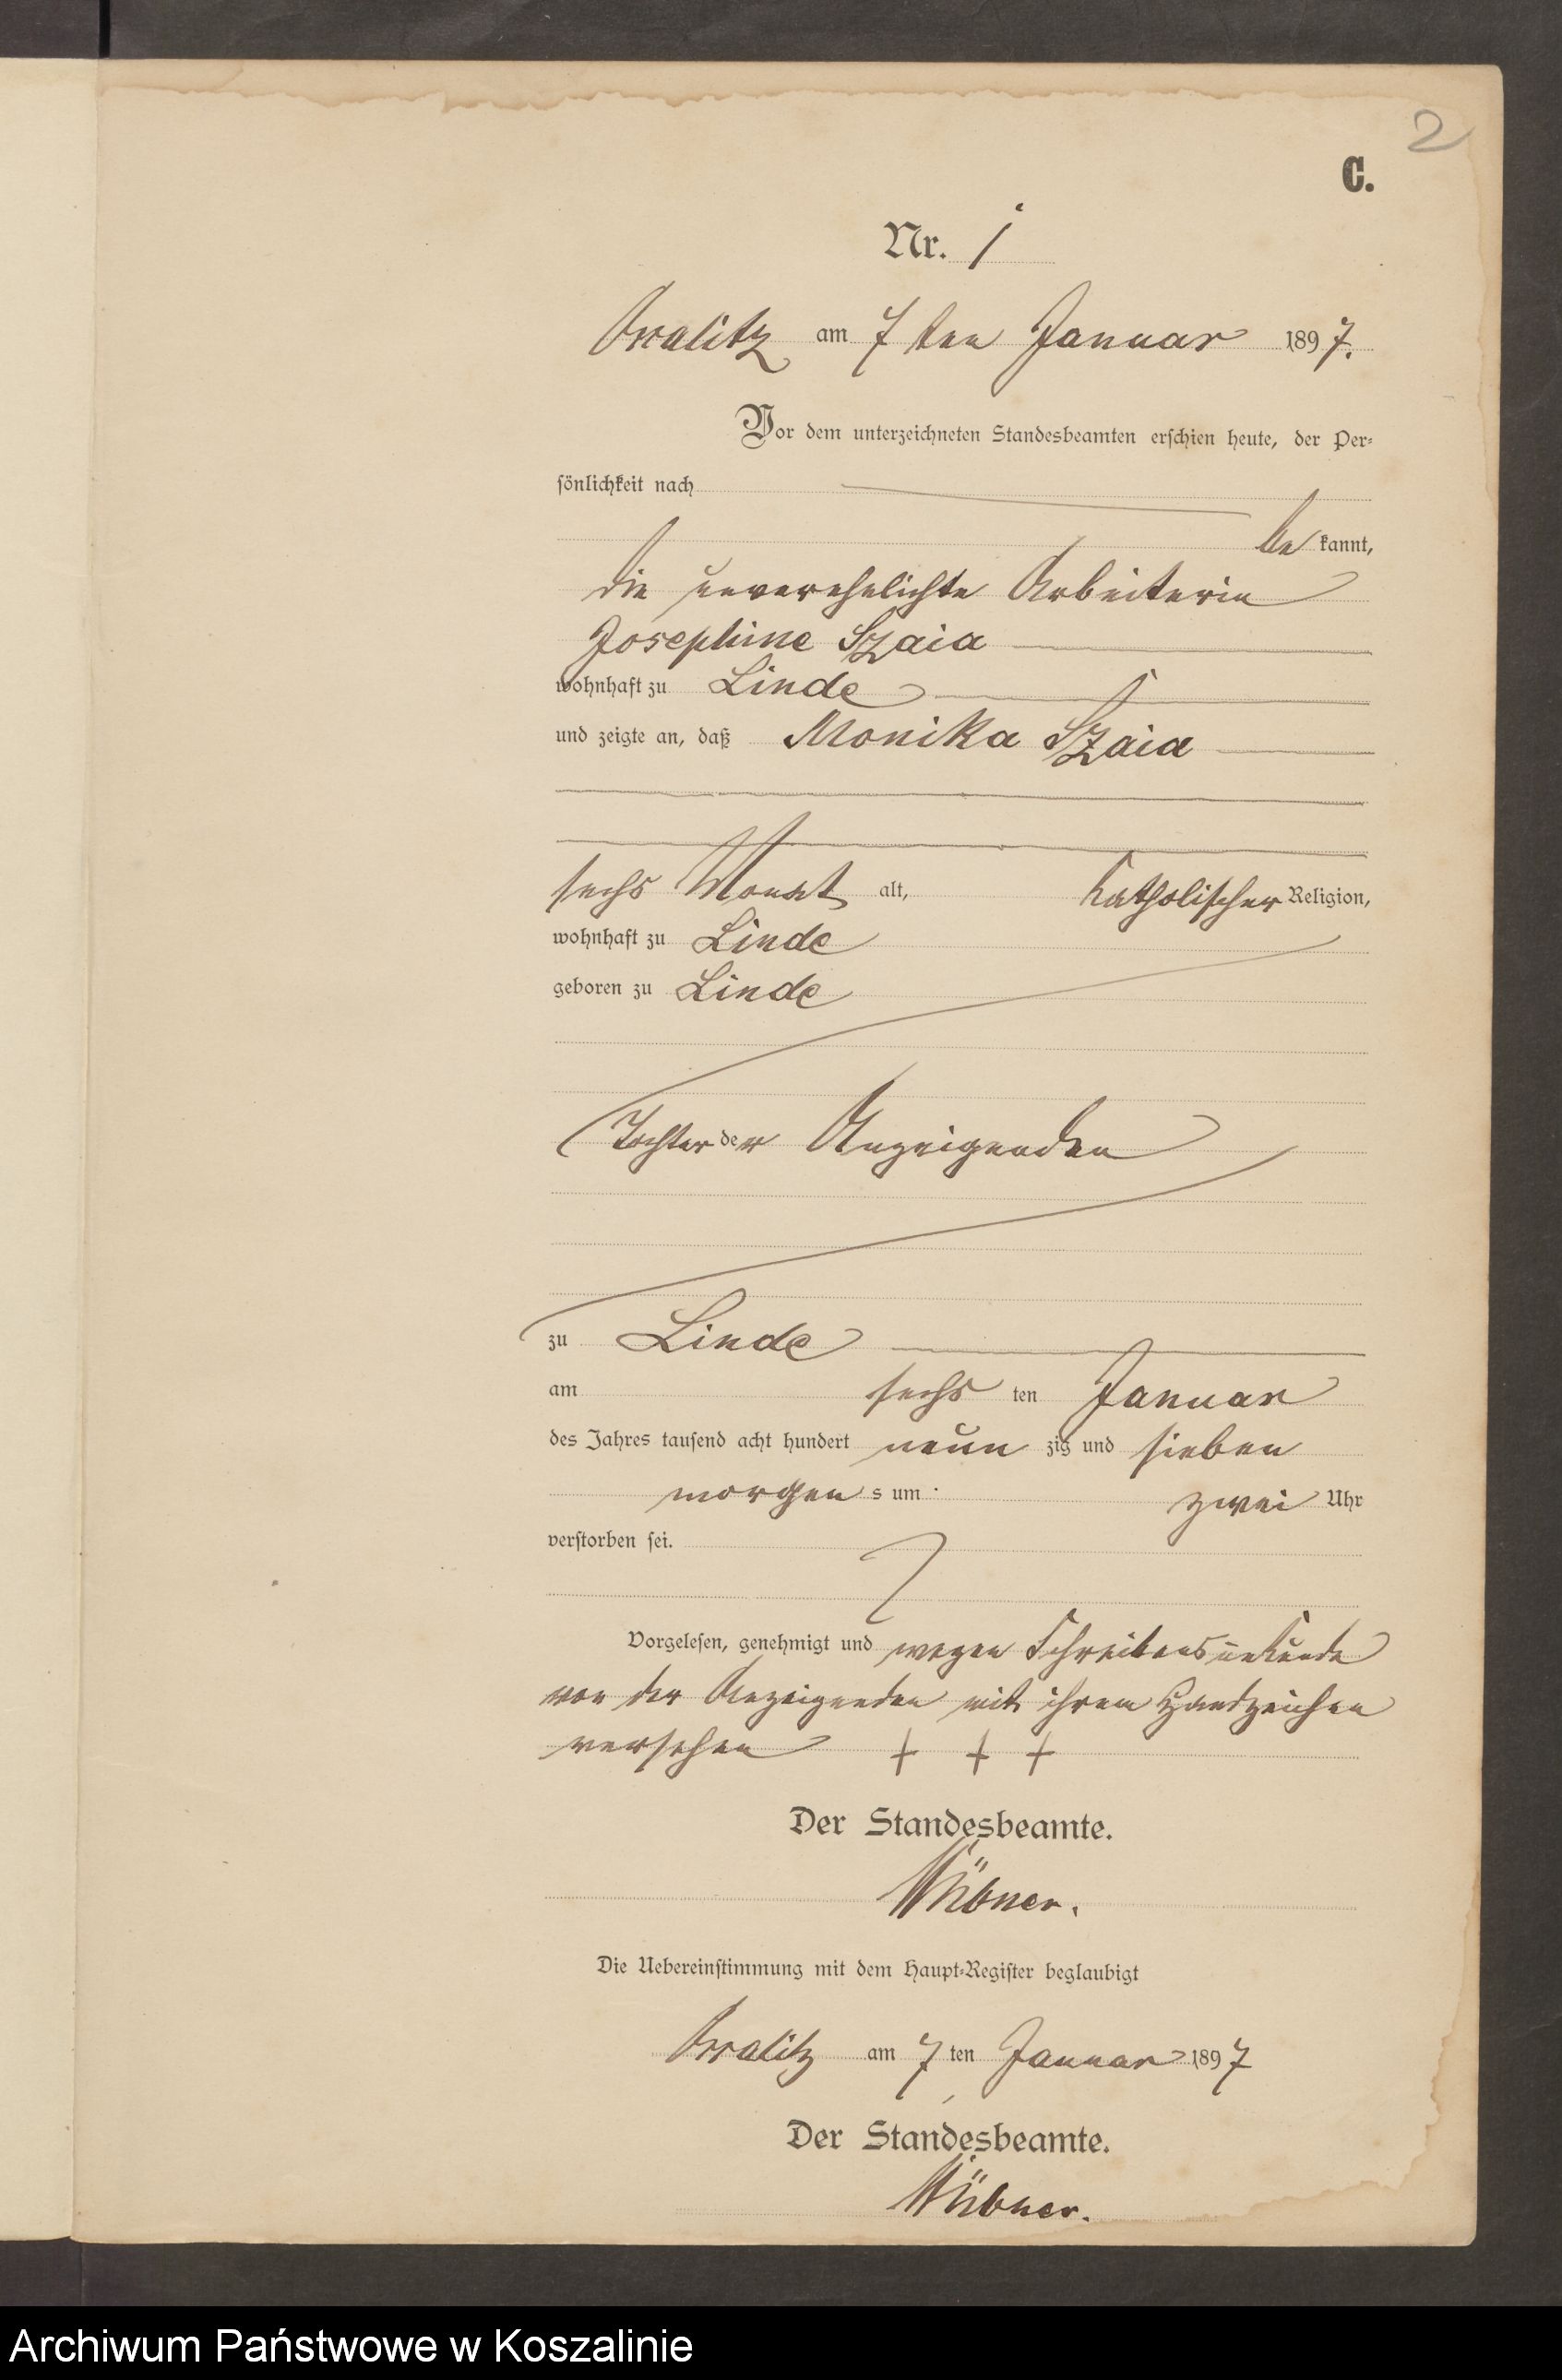 2
C.
Nr. 1
am 7ten Januar 1897.
Vor dem unterzeichneten Standesbeamten erschien heute, der Per-
sönlichkeit nach
bekannt,
die unverehelichte Arbeiterin
Josephine Szaia
wohnhaft zu Linde
und zeigte an, daß Monika Szaia
sechs Monat alt, katholischer Religion,
wohnhaft zu Linde
geboren zu Linde
Tochter der Anzeigenden
zu Linde
am sechsten Januar
des Jahres tausend acht hundert neunzig und sieben
morgens um zwei Uhr
verstorben sei.
Vorgelesen, genehmigt und wegen Schreibensunkunde
von der Anzeigenden mit ihrem Handzeichen
versehen + + +
Der Standesbeamte.
Die Uebereinstimmung mit dem Haupt-Register beglaubigt
am 7ten Januar 1897
Der Standesbeamte.
Archiwum Państwowe w Koszalinie